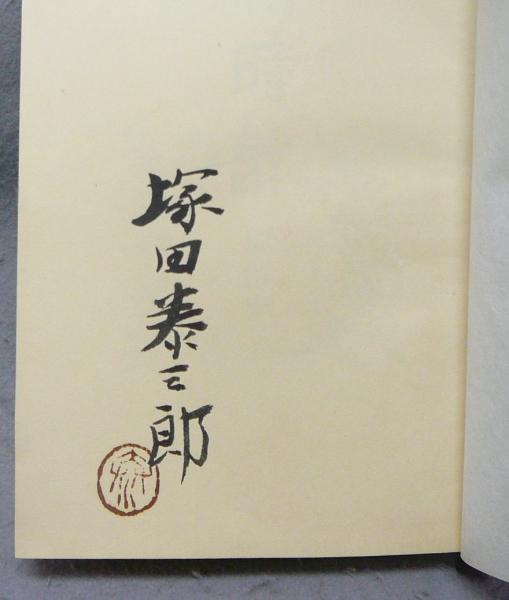 塚田泰三郎
泰